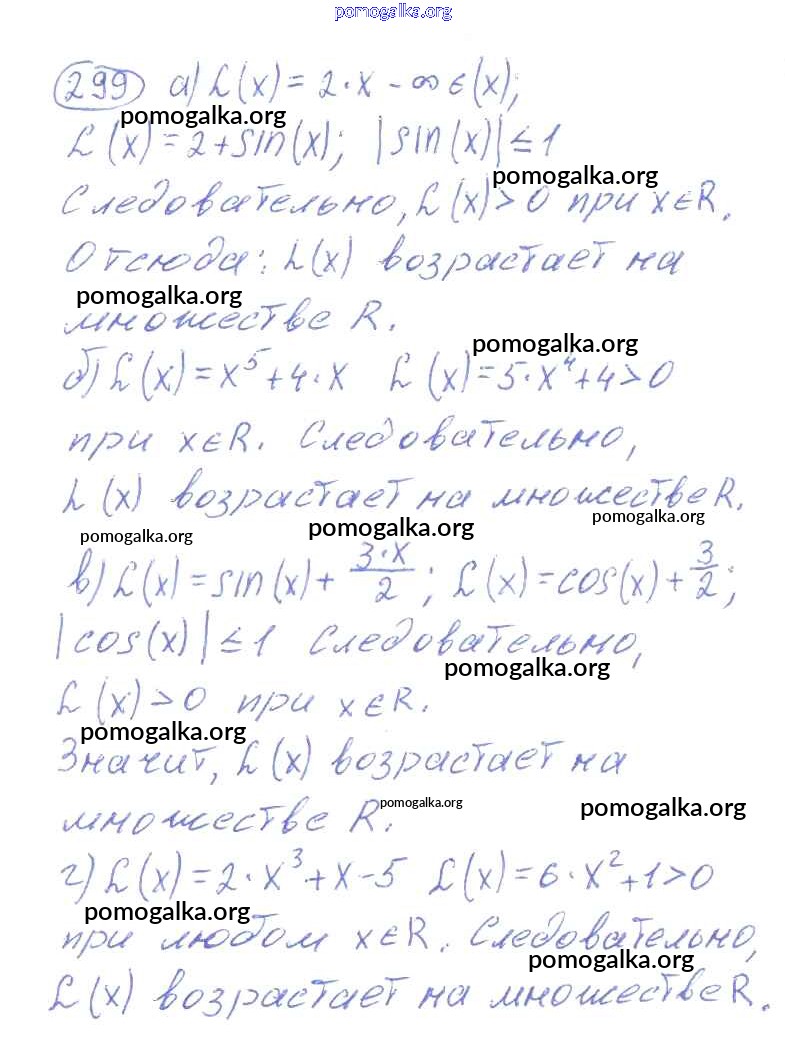 pomogalka.org
299 а) h(x) = 2·x - ∞ є(x);
pomogalka.org
h (x) = 2 + sin(x); |sin(x)| ≤ 1
pomogalka.org
Следовательно, h (x) > 0 при x∈R.
Отсюда: h(x) возрастает на
pomogalka.org
множестве R.
pomogalka.org
б) h(x) = x⁵ + 4·x h (x) = 5·x⁴ + 4 > 0
при x∈R. Следовательно,
h (x) возрастает на множестве R.
pomogalka.org
pomogalka.org
pomogalka.org
в) h(x) = sin(x) + 3·x/2 ; h (x) = cos(x) + 3/2 ;
|cos(x)| ≤ 1 Следовательно,
pomogalka.org
h (x) > 0 при x∈R.
pomogalka.org
Значит, h (x) возрастает на
pomogalka.org
pomogalka.org
множестве R.
г) h(x) = 2·x³ + x - 5 h(x) = 6·x² + 1 > 0
pomogalka.org
при любом x∈R. Следовательно,
pomogalka.org
h (x) возрастает на множестве R.